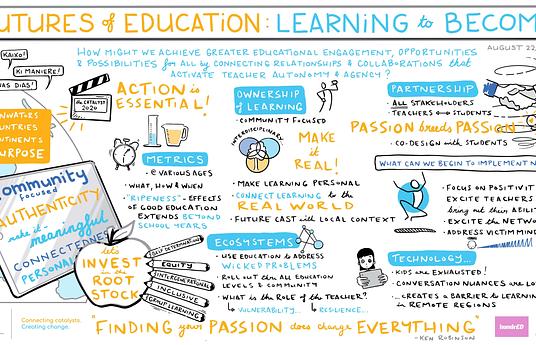 UTURES of EDUCATION: LEARNING to BECOM
HOW MIGHT WE ACHIEVE GREATER EDUCATIONAL ENGAGEMENT, OPPORTUNITIES
& POSSIBILITIES for ALL by CONNECTING RELATIONSHIPS & COLLABORATIONS that
ACTIVATE TEACHER AUTONOMY & AGENCY?
AUGUST 22,
KAIXO!
KI MANIERE!
AS DIAS!
the CATALYST
2020
NNVATORS
UNTRIES
NTINENTS
URPOSE
ACTION is
ESSENTIAL!
METRICS
• @ VARIOUS AGES
• WHAT, HOW & WHEN
• "RIPENESS" - EFFECTS
OF GOOD EDUCATION
EXTENDS BEYOND
SCHOOL YEARS
Community
focused
AUTHENTICITY
make it
meaningful
CONNECTEDNES
PERSONAL
let's
INVEST
in the
ROOT
STOCK
SELF DETERMINATION
EQUITY
INTERGENERATIONAL
INCLUSIVE
GROUP LEARNING
OWNERSHIP
of LEARNING
• COMMUNITY FOCUSED
INTERDISCIPLINARY
MAKE
it
REAL!
• MAKE LEARNING PERSONAL
• CONNECT LEARNING to the
REAL WORLD
• FUTURE CAST with LOCAL CONTEXT
ECOSYSTEMS
• USE EDUCATION to ADDRESS
WICKED PROBLEMS
• ROLL OUT thru ALL EDUCATION
LEVELS & COMMUNITY
• WHAT is the ROLE of the TEACHER?
↳ VULNERABILITY... ↳ RESILIENCE...
PARTNERSHIP
• ALL STAKEHOLDERS
• TEACHERS ↔ STUDENTS
PASSION breeds PASSION
• CO-DESIGN with STUDENTS
WHAT CAN WE BEGIN TO IMPLEMENT N
• FOCUS on POSITIVIT
• EXCITE TEACHERS
bring out their ABILI
• EXCITE the NETWO
• ADDRESS VICTIM MIND
TECHNOLOGY...
• KIDS are EXHAUSTED!
• CONVERSATION NUANCES are LO
• ...CREATES a BARRIER to LEARNIN
in REMOTE REGIONS
Connecting catalysts.
Creating change.
"FINDING your PASSION does change EVERYTHING"
- KEN ROBINSON